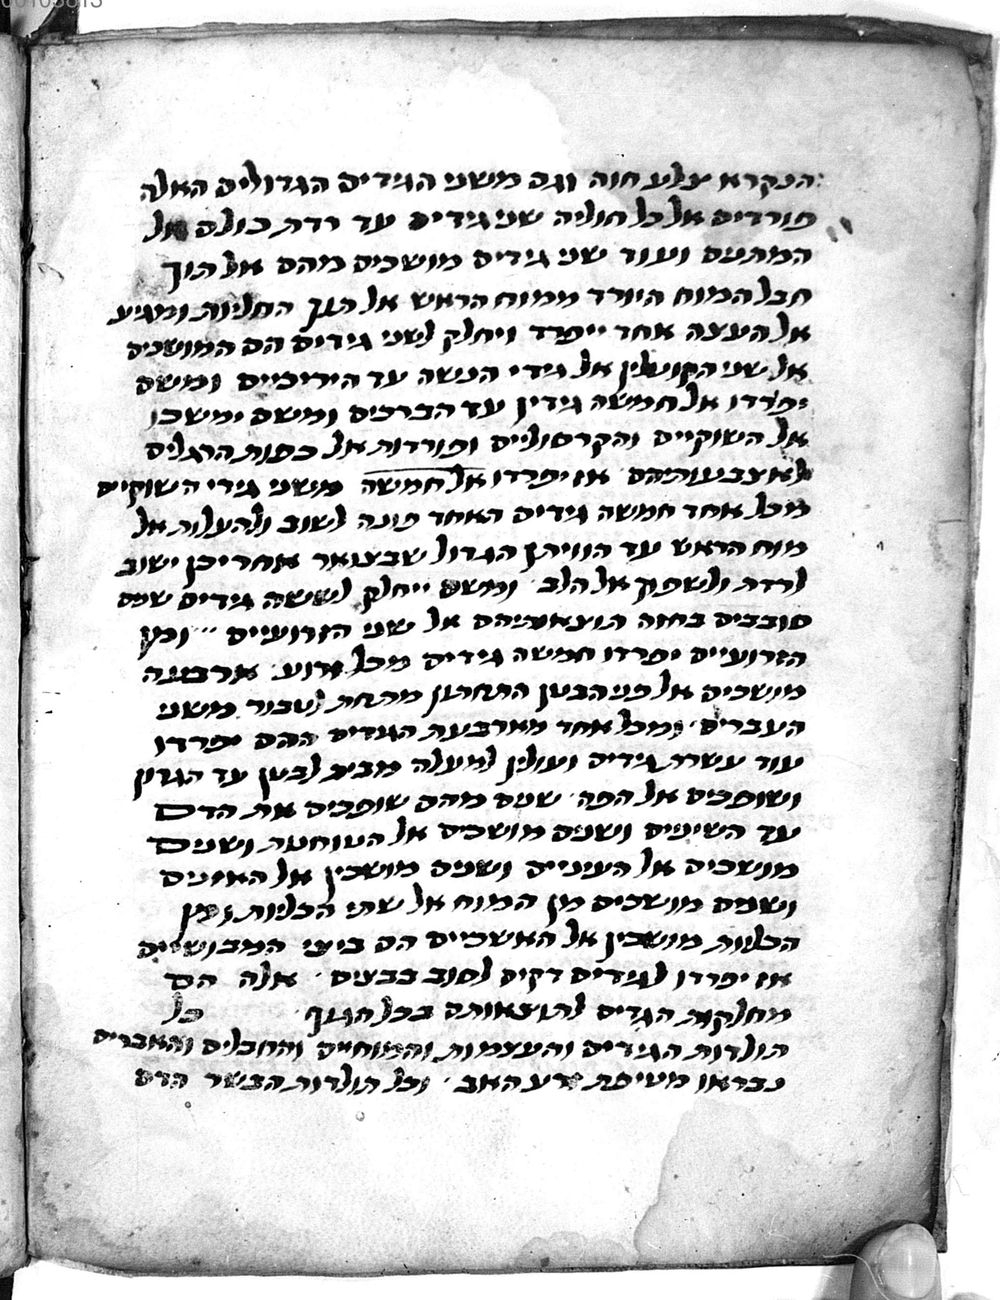 הנקרא צלע חוה וגם משני הגידים הגדולים האלה:
פורדים אל כל חוליה שני גידים עד רדת כולם אל
המתנים ועוד שני גידים מושכים מהם אל תוך
חבל המוח היורד ממוח הראש אל תוך החליות ומגיע
אל העצה אחד ייפרד ויחלק לשני גידים הם המושכים
אל שני הקוטלין אל גידי הנשה עד היריכיים ומשם
יפרדו אל חמשה גידין עד הברכים ומשם ימשכו
אל השוקיים והקרסוליים ופורדות אל כפות הרגלים
לאצבעותיהם אז יפרדו אל חמשה משני גידי השוקים
מכל אחד חמשה גידים האחד פונה לשוב ולהעלות אל
מוח הראש עד הוויתן הגדול שבצואר אחרי כן ישוב
לרדת ולשפך אל הלב ומשם ייחלק לששה גידים שנים
סובבים בחזה תוצאותיהם אל שני הזרועיים ומן
הזרועיים יפרדו חמשה גידים מכל זרוע ארבעה
מושכים אל פני הבטן התחתון מתחת לטבור משני
העברים ומכל אחד מארבעת הגידים ההם יפרדו
עוד עשרת גידים ועולין למעלה מבית לבטן עד הגרון
ושופכים אל הפה שנים מהם שופכים את הדם
עד השינים ושנים מושכים אל המוחות ושנים
מושכים אל העינים ושנים מושכין אל האזנים
ושנים מושכים מן המוח אל שתי הכליות ומן
הכליות מושכין אל האשכיים הם ביצי המבושים
אז יפרדו לגידים דקים לסוב בבצים אלה הם
מחלקות הגדים לתוצאותם בכל הגוף כל
תולדות הגידים והעצמות והמוחים והחבלים והאברים
נבראו מטיפת זרע האב וכל תולדות הבשר הדם